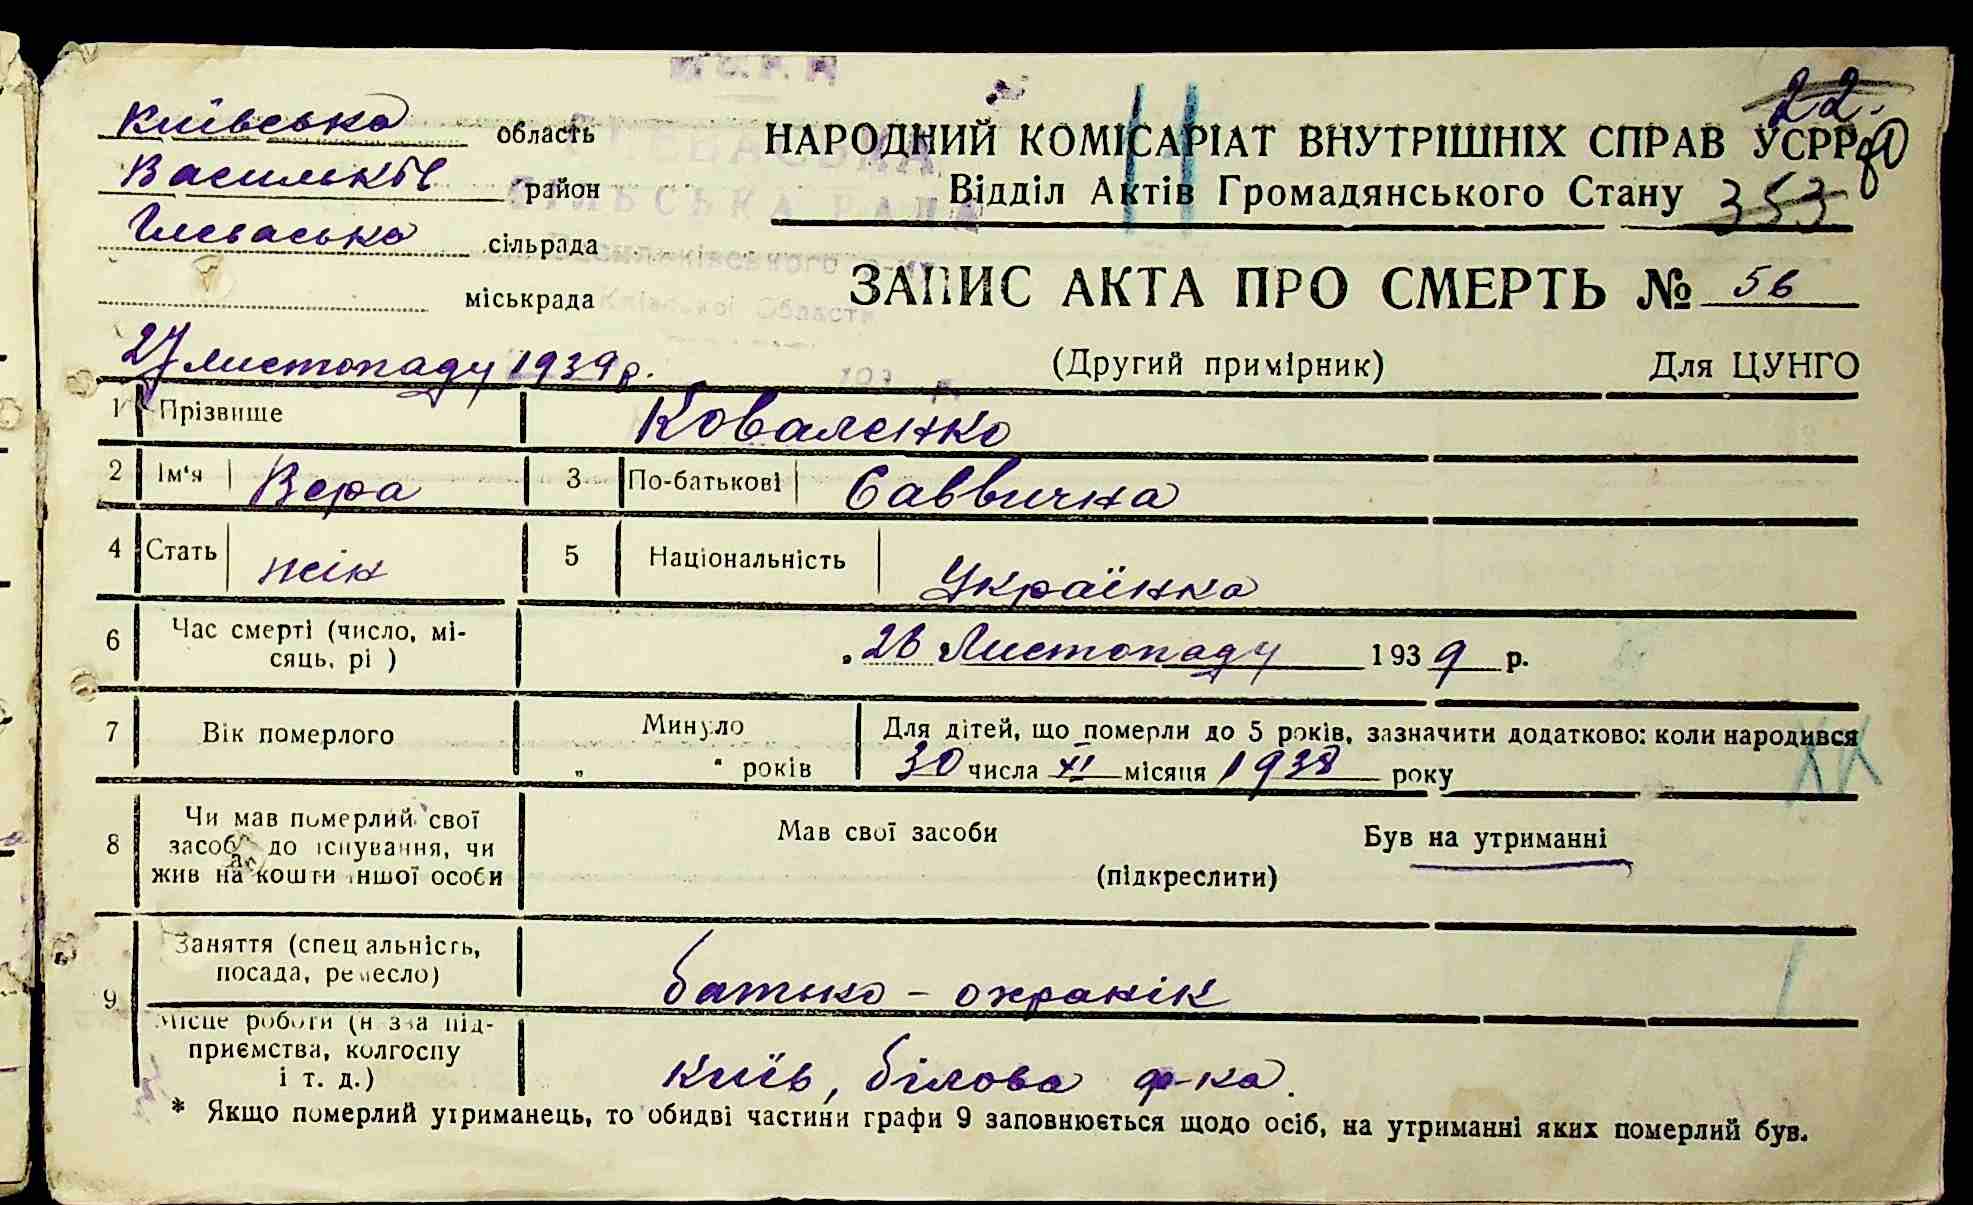 22.
Київська область
НАРОДНИЙ КОМІСАРІАТ ВНУТРІШНІХ СПРАВ УСРР
Васильків район
Відділ Актів Громадянського Стану 353
Глеваська сільрада
міськрада
ЗАПИС АКТА ПРО СМЕРТЬ № 56
27 листопаду 1939 р.
(Другий примірник) Для ЦУНГО
ГЛЕВАСЬКА
СІЛЬСЬКА РАДА
Васильківського
Київської Області
193 р.
1 Прізвище Коваленко
2 Ім'я Вера 3 По-батькові Саввична
4 Стать жін 5 Національність Українка
6 Час смерті (число, мі-
сяць, рі ) 26 Листопаду 1939 р.
7 Вік померлого Минуло
" " років
Для дітей, що померли до 5 років, зазначити додатково: коли народився
30 числа XI місяця 1938 року
8 Чи мав померлий свої
засоби до існування, чи
жив на кошти іншої особи
Мав свої засоби Був на утриманні
(підкреслити)
9 Заняття (спеціальність,
посада, ремесло) батько - охранік
Місце роботи (назва під-
приємства, колгоспу
і т. д.) Київ, білова ф-ка.
* Якщо померлий утриманець, то обидві частини графи 9 заповнюється щодо осіб, на утриманні яких померлий був.